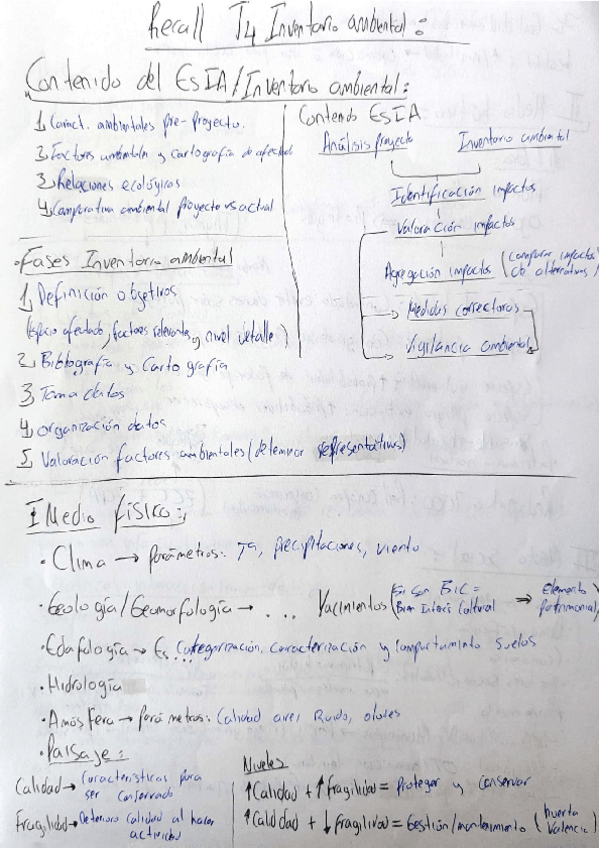 Recall T4 Inventario ambiental:
Contenido del EsIA/Inventario ambiental:
1, Caract. ambientales pre-proyecto.
2, Factores ambientales y cartografía de afectad
3, Relaciones ecológicas
4, Comparativa ambiental proyecto vs actual
·Fases Inventario ambiental
1, Definición objetivos
(espacio afectado, factores relevantes y nivel detalle)
2, Bibliografía y Cartografía
3, Toma datos
4, Organización datos
5, Valoración factores ambientales (determinar representativas)
Contendo EsIA
Análisis proyecto Inventario ambiental
Identificación impactos
Valoración impactos
Agregación impactos (comparar impactos
de alternativas)
→ Medidas correctoras
→ Vigilancia ambiental
I Medio físico:
·Clima → parámetros: Tª, precipitaciones, viento
·Geología/Geomorfología → ... Yacimientos (Si son BIC = Bien Interés Cultural ⇒ Elemento patrimonial)
·Edafología → Es... Categorización, caracterización y comportamiento suelos
·Hidrología
·Amósfera → parámetros: Calidad aire, Ruido, olores
·Paisaje:
Calidad → Características para
ser conservado
Fragilidad → Deterioro calidad al hacer
actividad
Niveles
↑Calidad + ↑Fragilidad = Proteger y conservar
↑Calidad + ↓Fragilidad = Gestión/mantenimiento (huerta
Valencia)